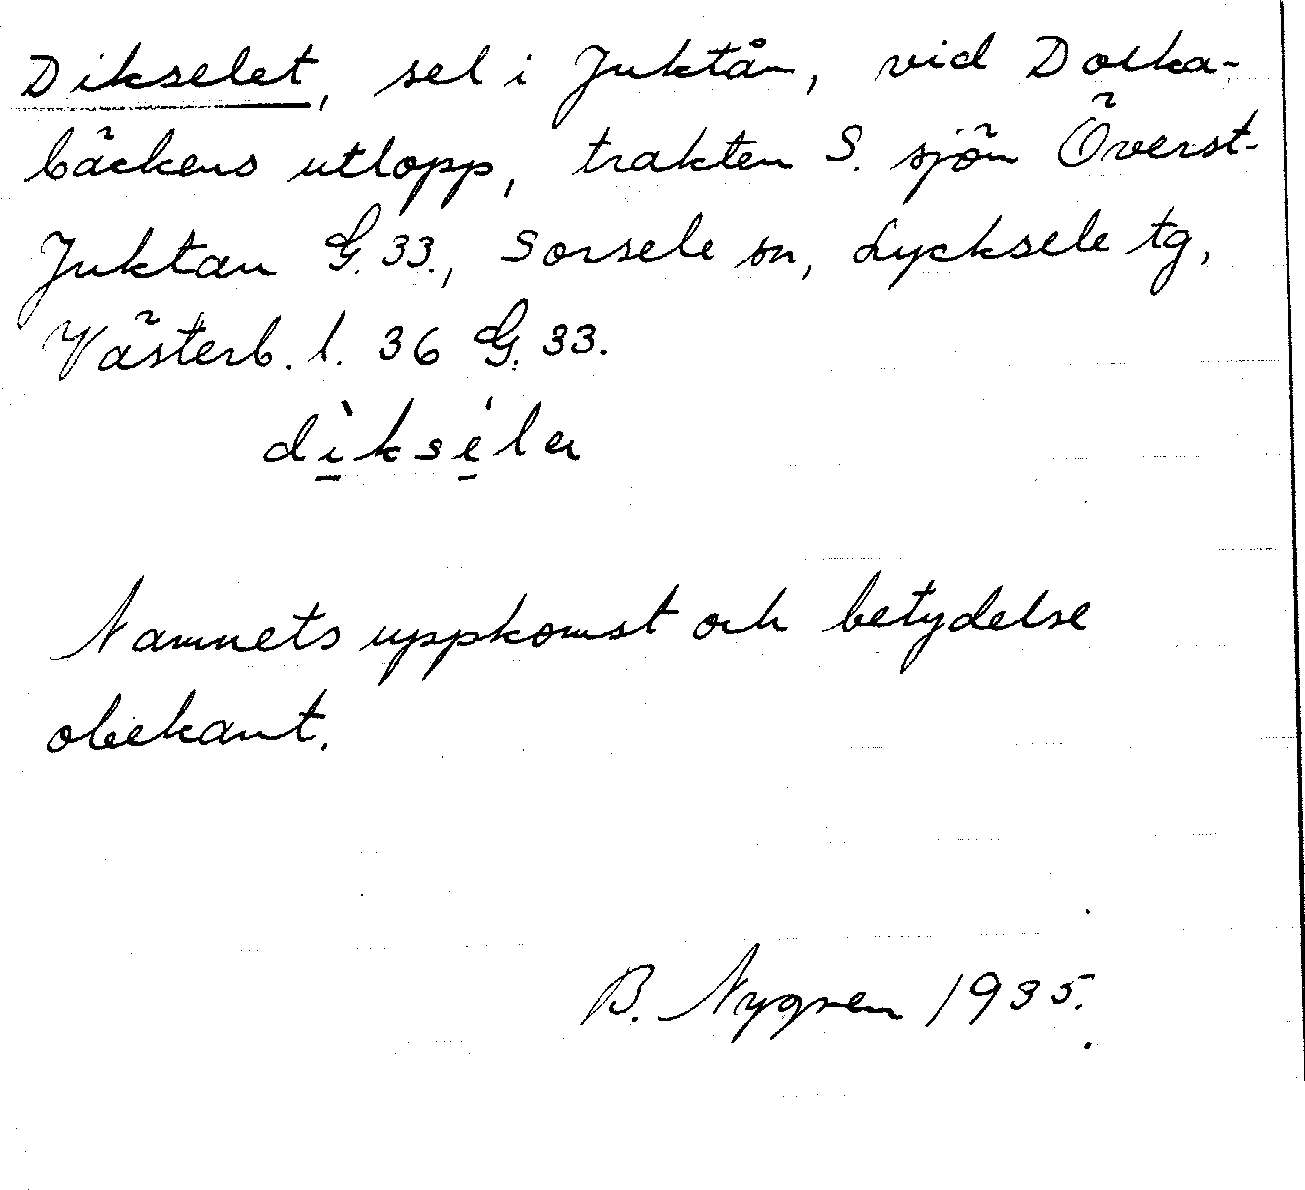 Dikselet, sel i Juktån, vid Dolka-
bäckens utlopp, trakten S. sjön Överst-
Juktan G. 33., Sorsele sn, Lycksele tg,
Västerb. l. 36 G. 33.
dı̱̀ksı̱́la
Namnets uppkomst och betydelse
obekant.
B. Nygren 1935.